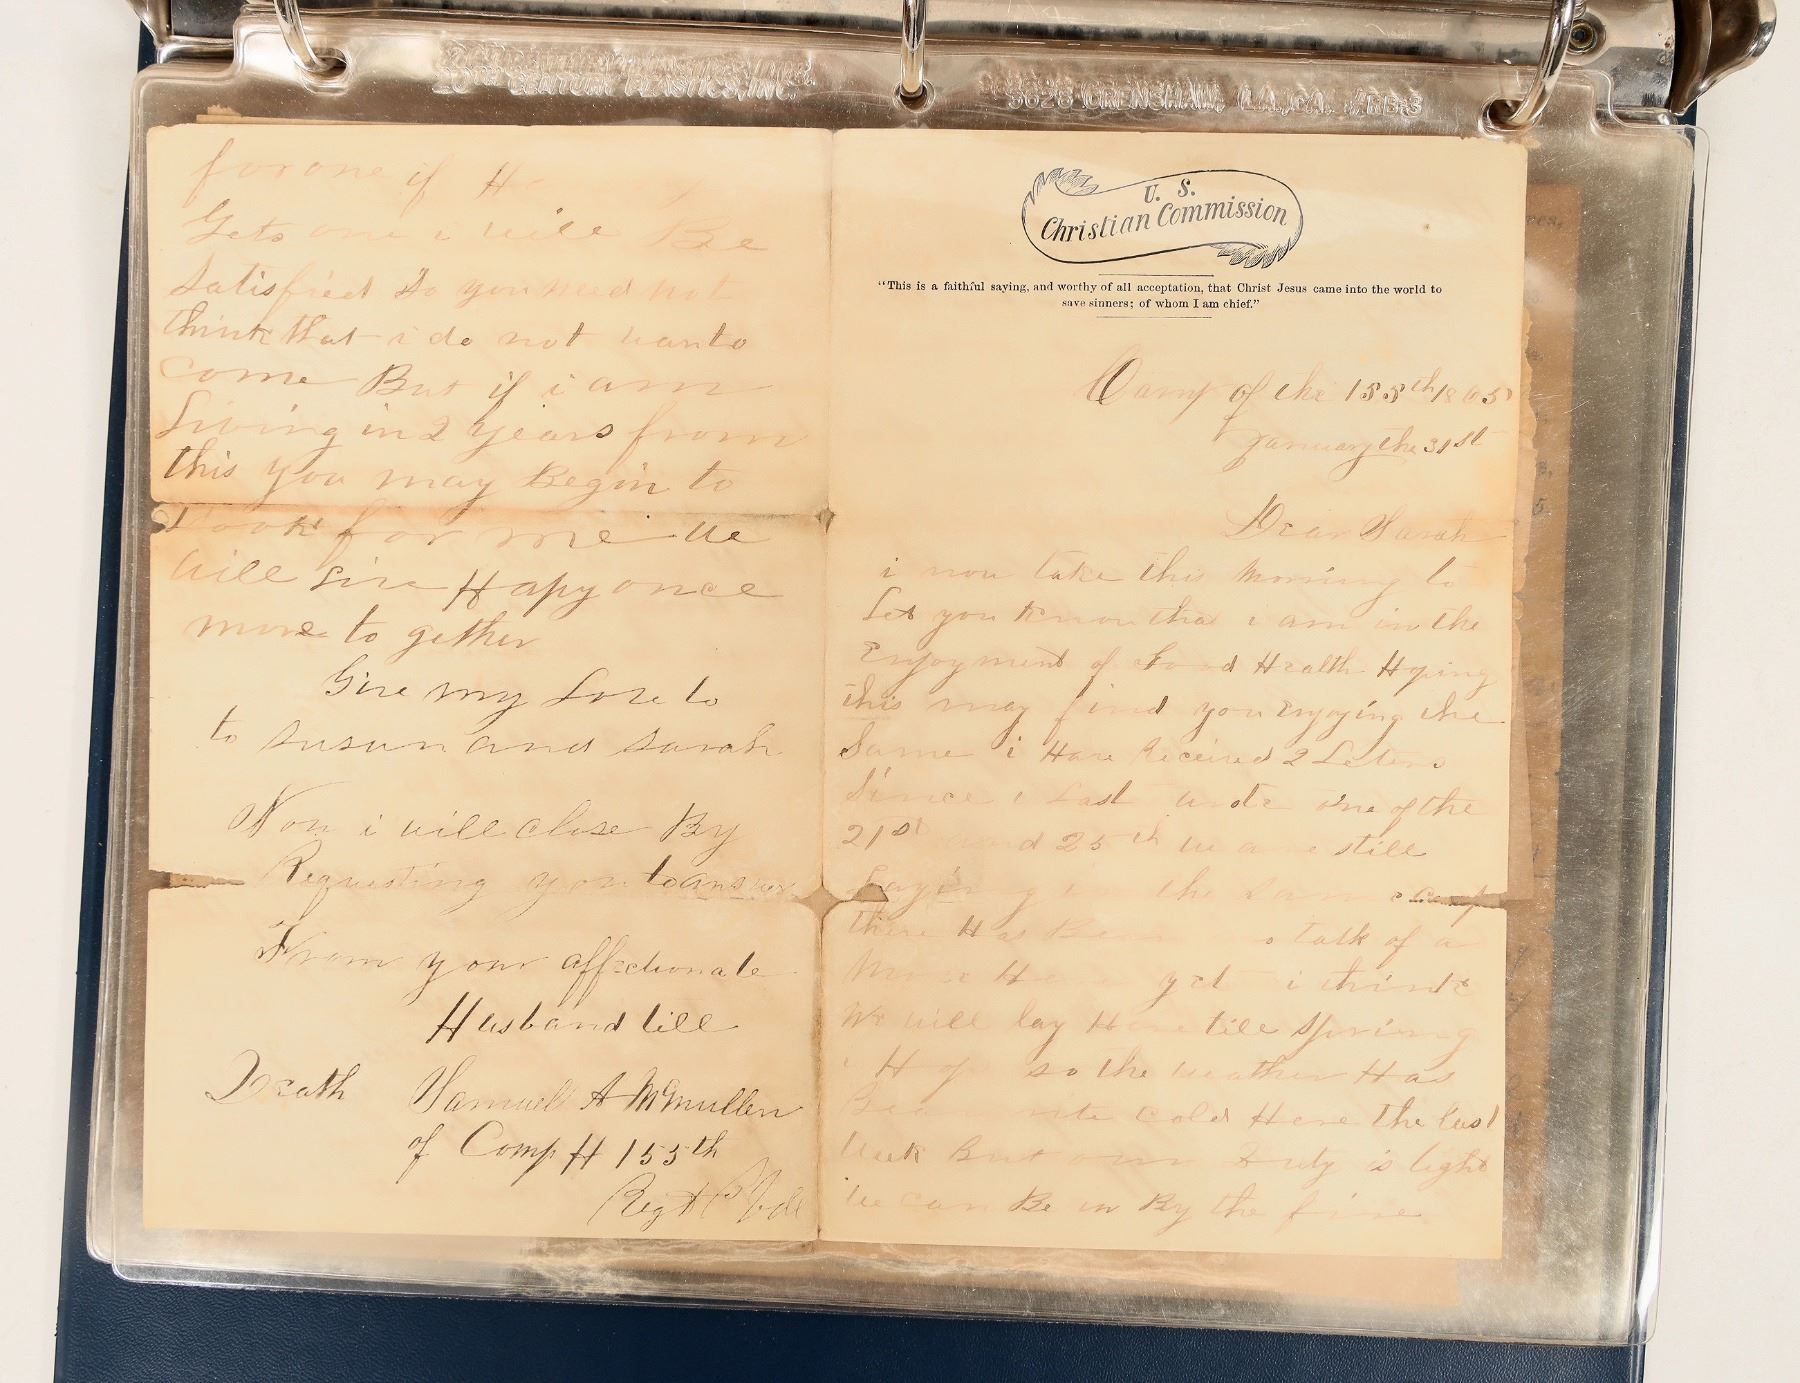 20TH CENTURY PLASTICS, INC.
3628 CRENSHAW, L.A., CA.
for one if
Gets one i will Be
Satisfied So you need not
think that i do not wanto
come But if i am
Living in 2 years from
this you may Begin to
Look for me we
will Live Hapy once
more to gether
Give my Love to
to susan and sarah
Now i will close By
Requesting you to answer
From your affectionate
Husband till
Death Samuell A McMullen
of Comp H 155th
Regt P Vol
U. S.
Christian Commission
“This is a faithful saying, and worthy of all acceptation, that Christ Jesus came into the world to
save sinners; of whom I am chief.”
Camp of the 155th 1865
January the 31st
Dear Sarah
i now take this Morning to
Let you Know that i am in the
Enjoyment of Good Health Hoping
this may find you Enjoying the
Same i Have Received 2 Leters
Since i Last wrote one of the
21st and 25th we are still
Laying in the Same camp
there Has Been no talk of a
Move Here yet i think
We will lay Here till Spring
i Hope so the weather Has
Been cold Here the last
week But our Duty is light
we can Be in By the fire